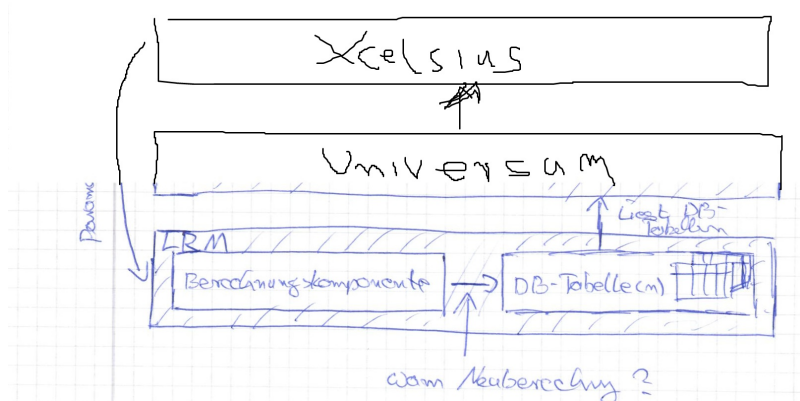 Xcelsius
Universum
Params
Liest DB-
Tabellen
LRM
Berechnungskomponente
DB-Tabelle(n)
wann Neuberechng ?